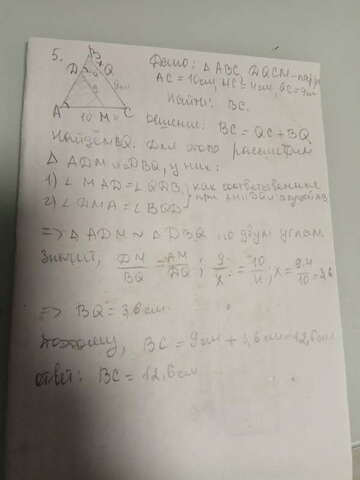 5.
B
D Q
9см
A 10 M C
Дано: △ABC, DQCM - пар.
AC = 10см, MC = 4см, QC = 9см
Найти: BC.
Решение: BC = QC + BQ
Найдём BQ. Для этого рассмотрим
△ADM и △DBQ, у них:
1) ∠MAD = ∠QDB, как соответственные
2) ∠DMA = ∠BQD при
=> △ADM ~ △DBQ по двум углам
Значит, DM/BQ = AM/DQ; 9/x = 10/4, x = 9·4/10 = 3,6
=> BQ = 3,6 см
Поэтому, BC = 9см + 3,6см = 12,6см
Ответ: BC = 12,6 см